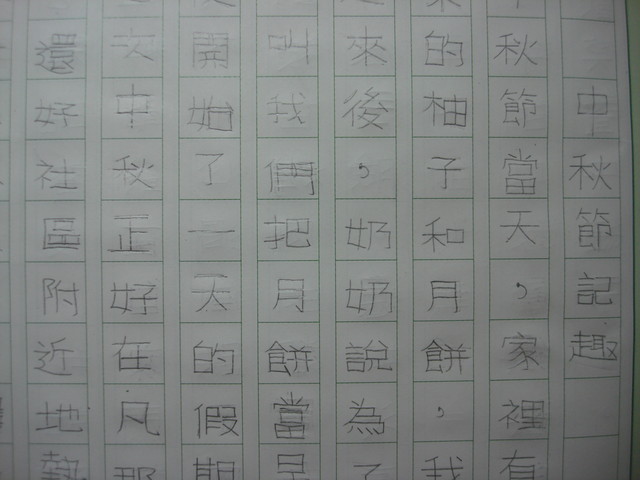 中秋節記趣
秋節當天，家裡有
的柚子和月餅，我
來後，奶奶說為了
叫我們把月餅當早
開始了一天的假期
次中秋正好在凡那
還好社區附近地勢